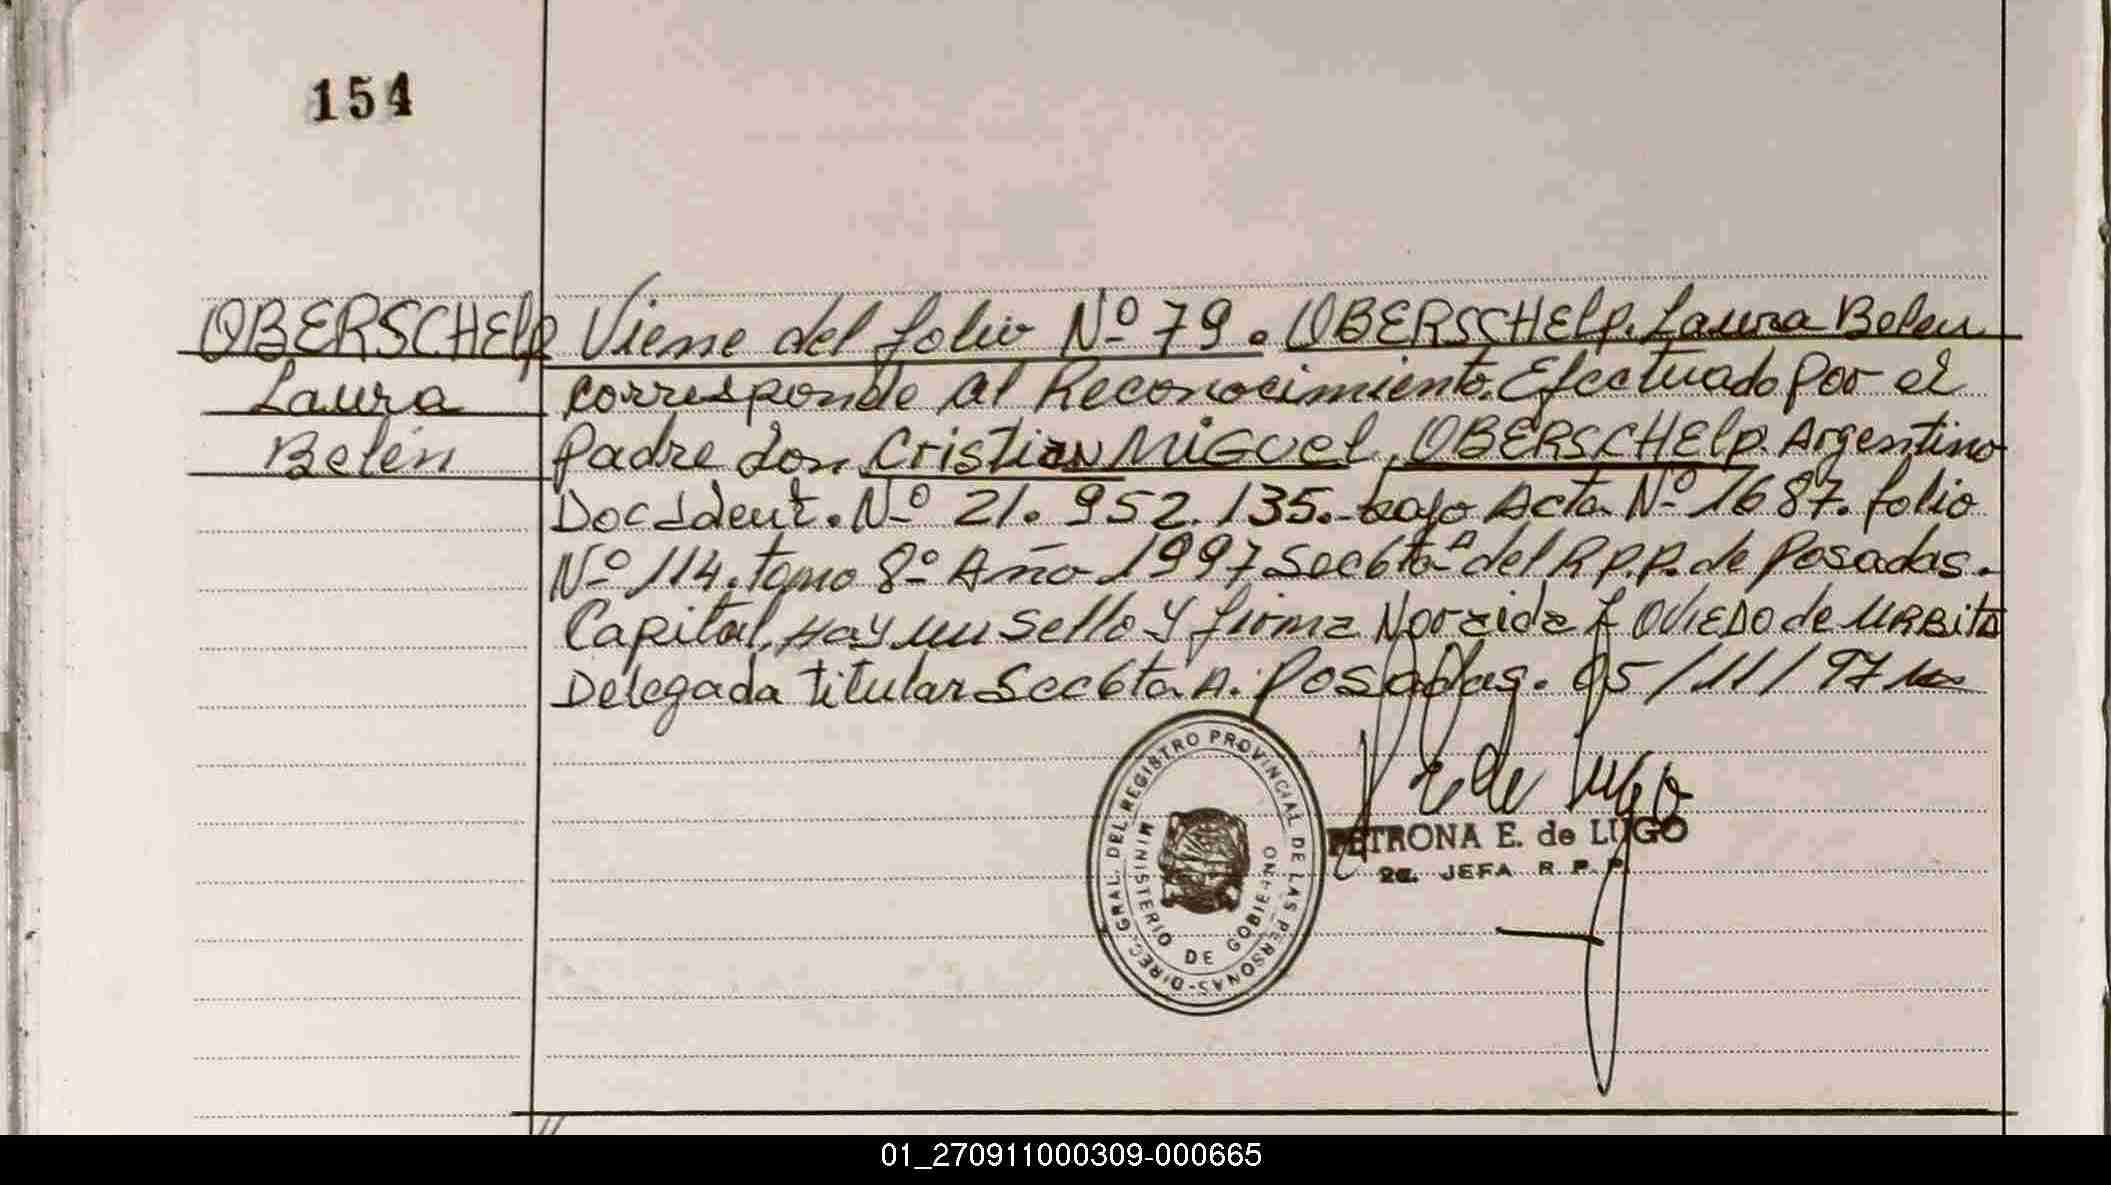 154
OBERSCHElp
Laura
Belén
Viene del folio Nº 79. OBERSCHElp. Laura Belen
corresponde al Reconocimiento. Efectuado Por el
Padre don Cristian MiGuel, OBERSCHElp. Argentino
Doc Ident. Nº 21.952.135.- bajo Acta Nº 1687. folio
Nº 114. tomo 8º Año 1997 Sec 6ta A del R.P.P. de Posadas.
Capital. Hay un Sello y firma Noraida L OVIEDO de URBita
Delegada titular Sec 6ta A. Posadas. 05/11/97
DIREC. GRAL. DEL REGISTRO PROVINCIAL DE LAS PERSONAS-
MINISTERIO DE GOBIERNO
P E de Lugo
PETRONA E. de LUGO
2a. JEFA R. P. P.
01_270911000309-000665